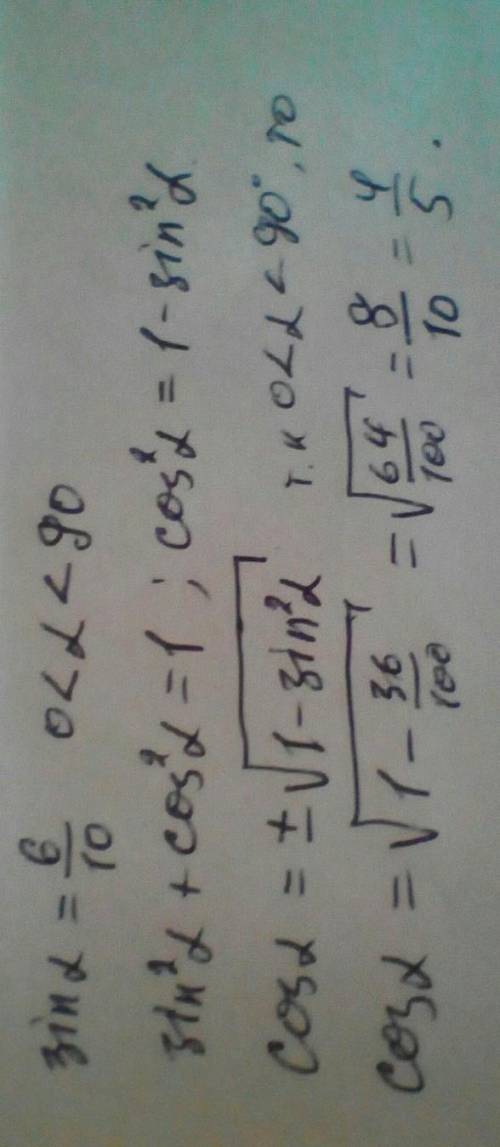 sin α = 6/10   0 < α < 90
sin²α + cos²α = 1 ; cos²α = 1 - sin²α
cos α = ±√(1 - sin²α)   т.к 0 < α < 90°, то
cos α = √(1 - 36/100) = √(64/100) = 8/10 = 4/5 .